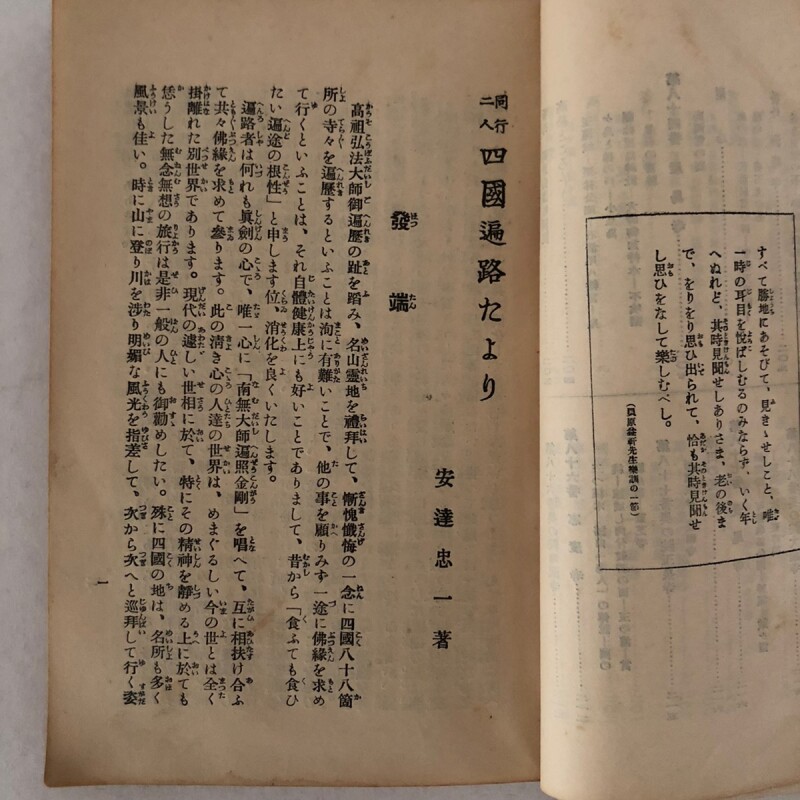 すべて勝地にあそびて、見きゝせしこと、唯
一時の耳目を悦ばしむるのみならず、いく年
へぬれど、其時見聞せしありさま、老の後ま
で、をりをり思ひ出られて、恰も其時見聞せ
し思ひをなして樂しむべし。
(貝原益軒先生樂訓の一節)
同行二人 四國遍路たより
安達忠一著
發端
高祖弘法大師御遍歷の趾を蹈み、名山靈地を禮拜して、慚愧懺悔の一念に四國八十八箇
所の寺々を遍歷するといふことは洵に有難いことで、他の事を顧りみず一途に佛緣を求め
て行くといふことは、それ自體健康上にも好いことでありまして、昔から「食ふても食ひ
たい遍途の根性」と申します位、消化を良くいたします。
遍路者は何れも眞劍の心で、唯一心に「南無大師遍照金剛」を唱へて、互に相扶け合ふ
て共々佛緣を求めて參ります。此の淸き心の人達の世界は、めまぐるしい今の世とは全く
掛離れた別世界であります。現代の遽しい世相に於て、特にその精神を靜める上に於ても
恁うした無念無想の旅行は是非一般の人にも御勸めしたい。殊に四國の地は、名所も多く
風景も佳い。時に山に登り川を涉り明媚な風光を指差して、次から次へと巡拜して行く姿
一